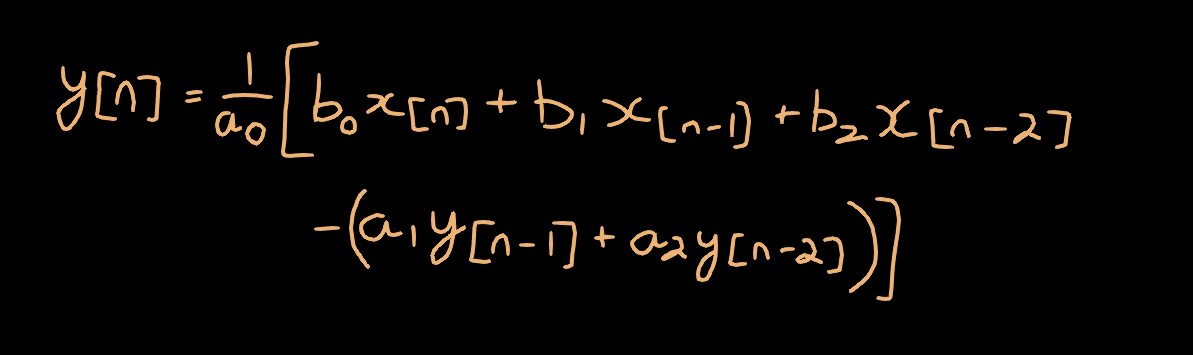 y[n] = \frac{1}{a_0} [ b_0 x[n] + b_1 x[n-1] + b_2 x[n-2]
-(a_1 y[n-1] + a_2 y[n-2])]